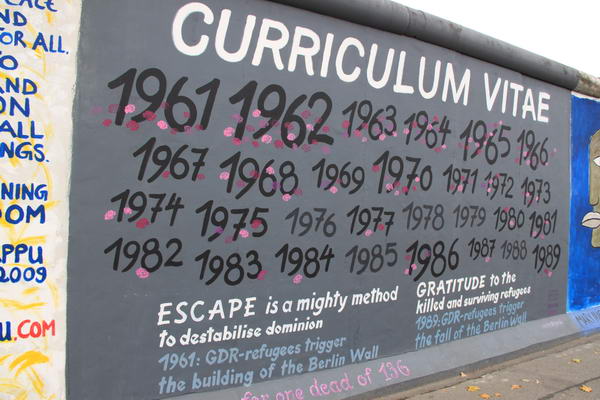 PEACE
ND
FOR ALL.
TO
AND
ON
ALL
NGS.
NING
DOM
APPU
2009
U.COM
CURRICULUM VITAE
1961 1962 1963 1964 1965 1966
1967 1968 1969 1970 1971 1972 1973
1974 1975 1976 1977 1978 1979 1980 1981
1982 1983 1984 1985 1986 1987 1988 1989
ESCAPE is a mighty method
to destabilise dominion
1961: GDR-refugees trigger
the building of the Berlin Wall
GRATITUDE to the
killed and surviving refugees
1989: GDR-refugees trigger
the fall of the Berlin Wall
for one dead of 136